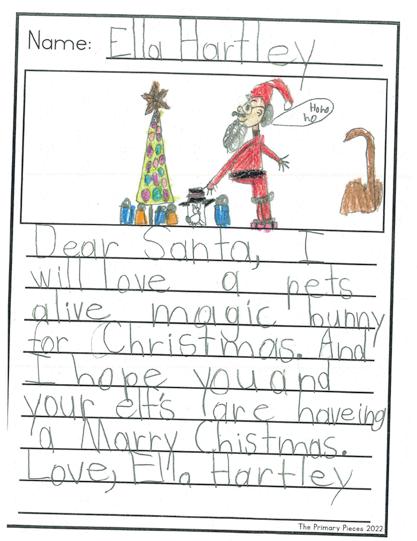 Name: Ella Hartley
Hoho
ho
Dear Santa, I
will love a pets
alive magic bunny
for Christmas. And
I hope you and
your elf's are haveing
a Marry Chistmas.
Love, Ella Hartley
The Primary Pieces 2022